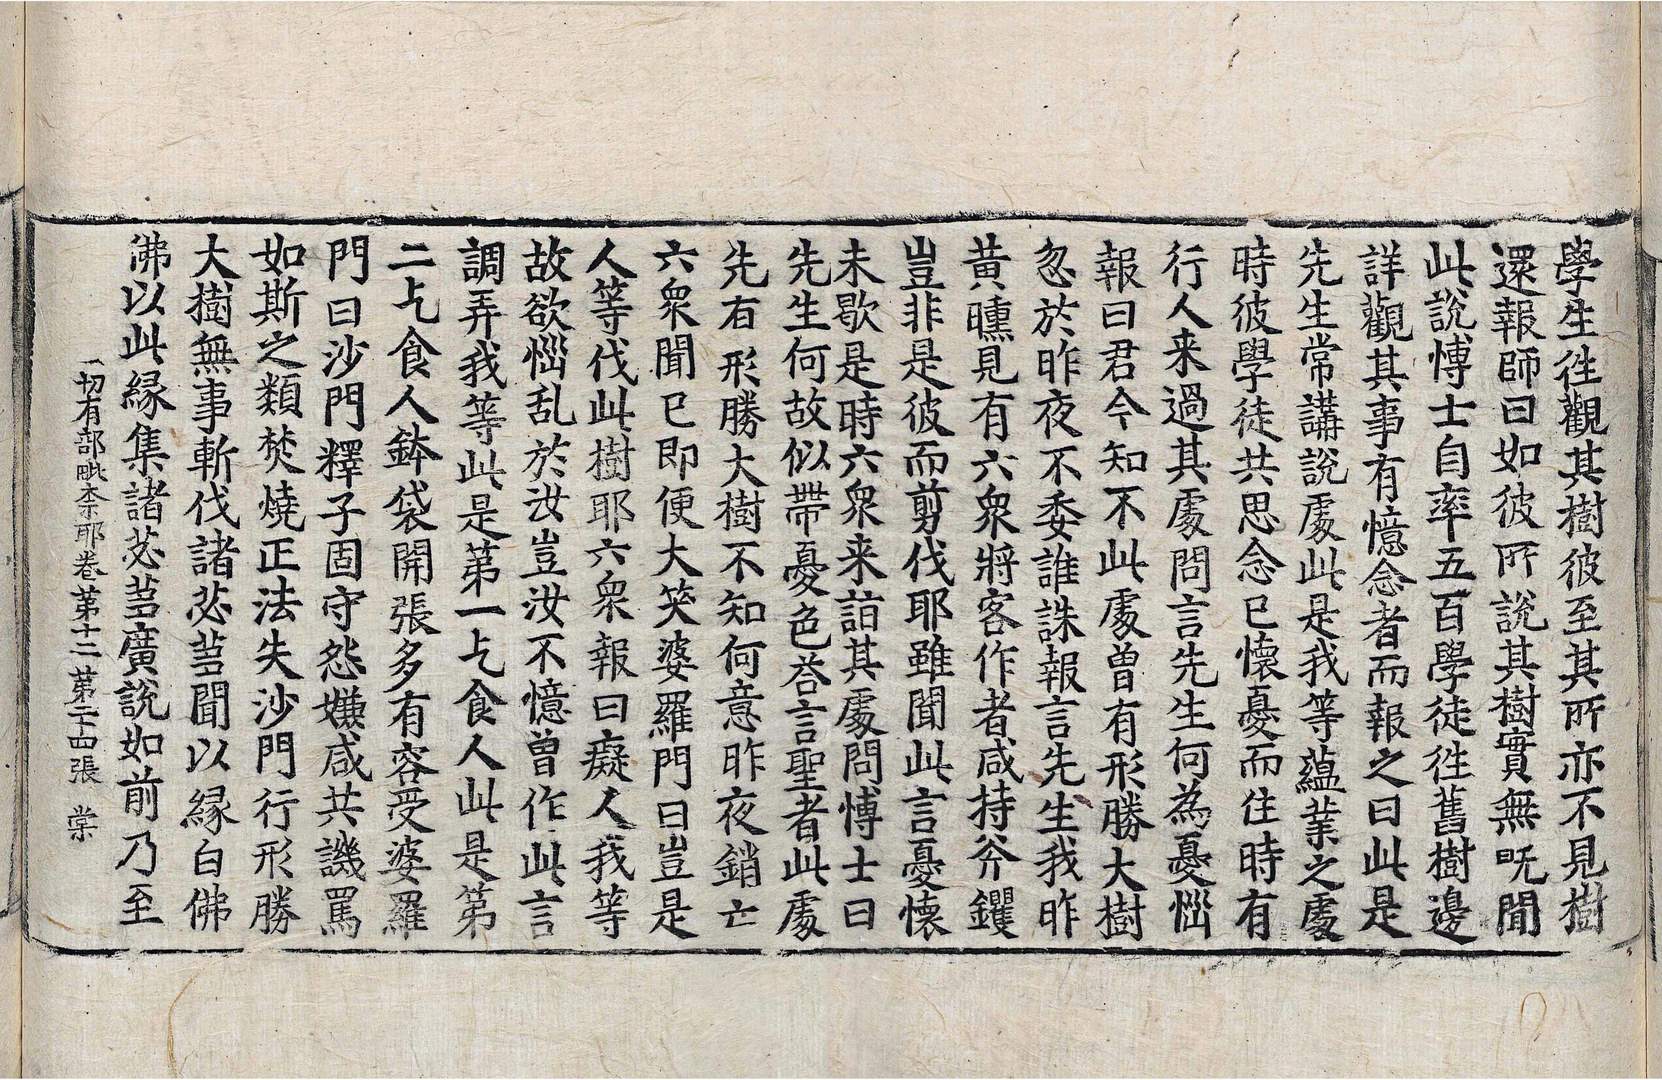 學生往觀其樹彼至其所亦不見樹
還報師曰如彼所說其樹實無旣聞
此說愽士自率五百學徒往舊樹邊
詳觀其事有憶念者而報之曰此是
先生常講說處此是我等蘊業之處
時彼學徒共思念已懷憂而住時有
行人来過其處問言先生何為憂惱
報曰君今知不此處曾有形勝大樹
忽於昨夜不委誰誅報言先生我昨
黃曛見有六衆將客作者咸持斧钁
豈非是彼而剪伐耶雖聞此言憂懷
未歇是時六衆来詣其處問愽士曰
先生何故似帶憂色荅言聖者此處
先有形勝大樹不知何意昨夜銷亡
六衆聞已即便大笑婆羅門曰豈是
人等伐此樹耶六衆報曰癡人我等
故欲惱乱於汝豈汝不憶曾作此言
調弄我等此是第一乞食人此是第
二乞食人鉢袋開張多有容受婆羅
門曰沙門釋子固守怨嫌咸共譏罵
如斯之類焚燒正法失沙門行形勝
大樹無事斬伐諸苾蒭聞以緣白佛
佛以此緣集諸苾蒭廣說如前乃至
一切有部毗柰耶卷第十二 第二十四張 棠